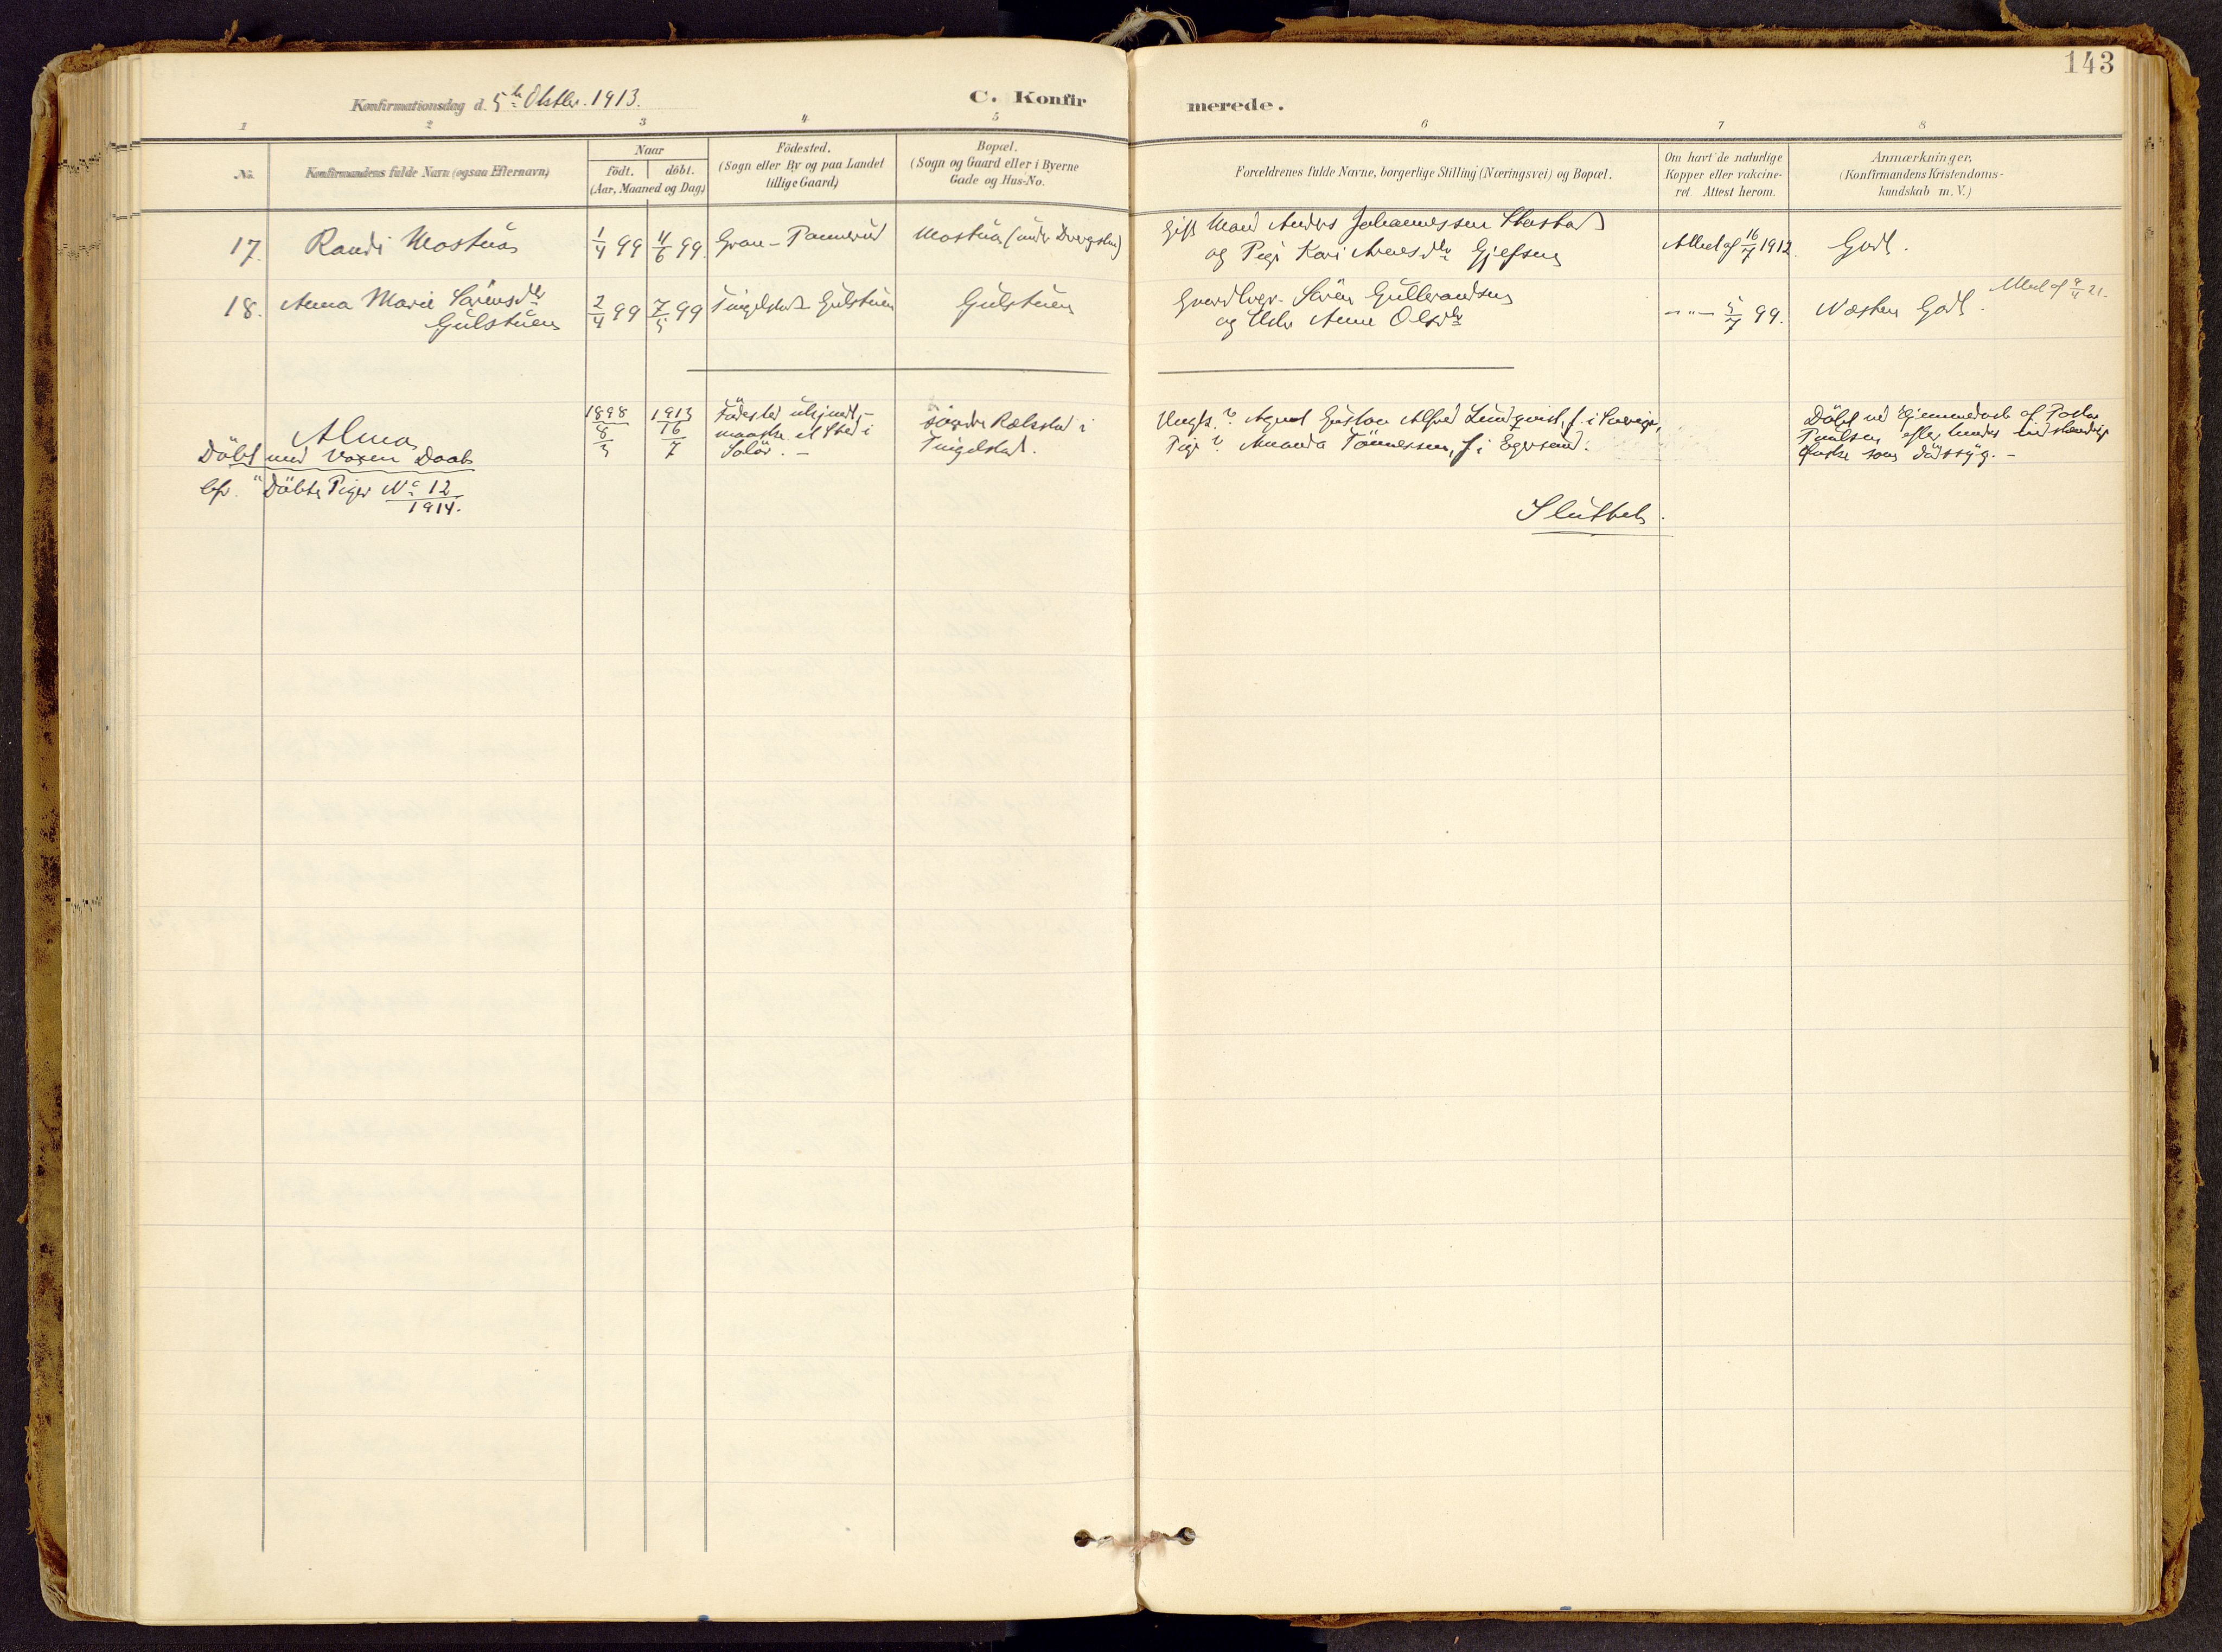 143
Konfirmationsdag d. 5te Oktbr. 1913.
C. Konfirmerede.
1 2 3 4 5 6 7 8
No.
Konfirmandens fulde Navn (ogsaa Efternavn)
Naar
födt. döbt.
(Aar, Maaned og Dag)
Födested.
(Sogn eller By og paa Landet
tillige Gaard)
Bopæl.
(Sogn og Gaard eller i Byerne
Gade og Hus-No.
Forældrenes fulde Navne, borgerlige Stilling (Næringsvei) og Bopæl.
Om havt de naturlige
Kopper eller vakcine-
ret. Attest herom.
Anmærkninger,
(Konfirmandens Kristendoms-
kundskab m. V.)
17. Randi Mostuen
1/4 99 11/6 99
Gran - Pannerud
Mostuen (under Dvergsten)
Gift Mand Anders Johannessen
og Pige Kari Arnesdtr Gjefsen
Attest af 16/7 1912.
Godt.
18. Anna Marie Sörensdtr
Gulstuen
2/4 99 7/5 99
Tingelstad - Gulstuen
Gulstuen
Gaardbrgr. Sören Gulbrandsen
og Hstr Anne Olsdtr
— " — 5/7 99.
Næsten Godt.
Attest af 9/4 21.
Alma
Döbt med Voxen Daab
cfr. "Döbte Piger No 12
1914.
1898
8/3
1913
16/7
Födested ukjendt,-
maaske et Sted i
Solör. -
söndre Rækstad i
Tingelstad.
Ungk. ? Agent Gustav Alfred Lindqvist, f. i Sverige,
Pige ? Amanda Tönnessen, f. i Egersund.
Döbt ved Hjemmedaab af Pastor
Paulsen efter hendes
Önske som dödssyg. -
Sluttet.